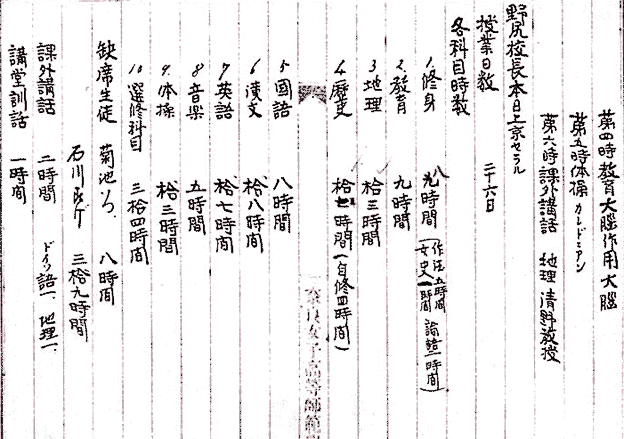 第四時教育大脳作用大脳
第五時体操カレドニアン
第六時課外講話 地理 清野教授
野尻校長本日上京セラル
授業日数 二十六日
各科目時数
1.修身 八時間(作法五時間 女史一時間 論語二時間)
2.教育 九時間
3.地理 拾三時間
4.歴史 拾 時間(自修四時間)
5.國語 八時間
6.漢文 拾八時間
7.英語 拾七時間
8.音楽 五時間
9.体操 拾三時間
10.選修科目 三拾四時間
缺席生徒 菊池いろ、 八時間
石川 三拾九時間
課外講話 二時間 ドイツ語一、地理一、
講堂訓話 一時間
奈良女子高等師範